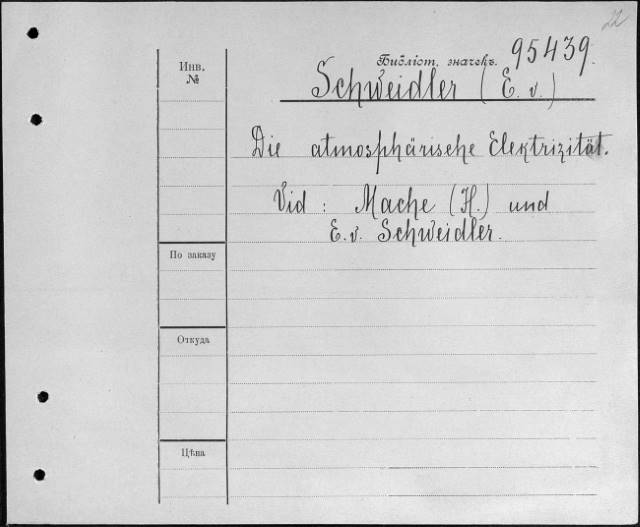 22
Библіот. значекъ. 95439.
Инв.
№
Schweidler (E. v.)
Die atmosphärische Elektrizität.
Vid : Mache (H.) und
E. v. Schweidler.
По заказу
Откуда
Цѣна